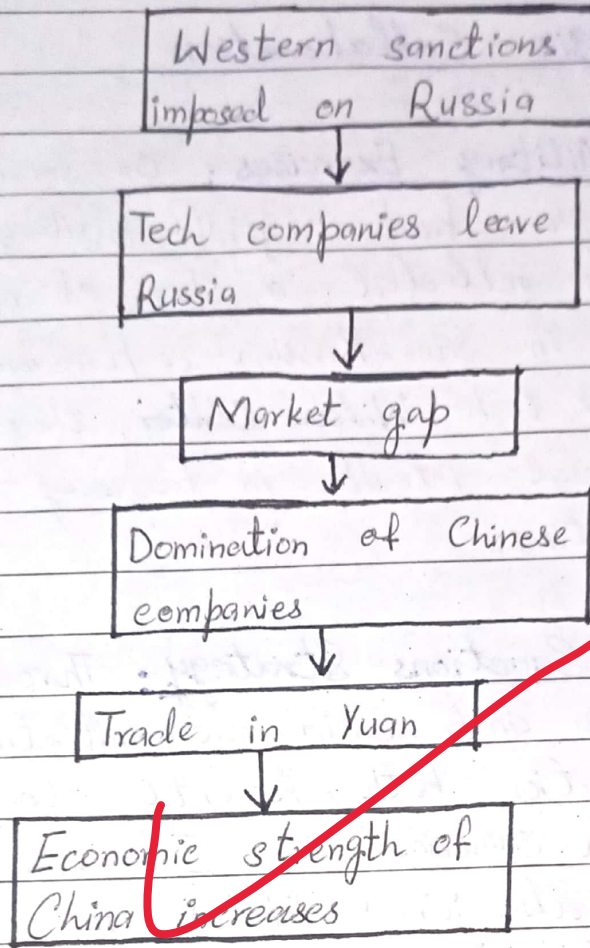 Western sanctions
imposed on Russia
Tech companies leave
Russia
Market gap
Domination of Chinese
companies
Trade in Yuan
Economic strength of
China increases